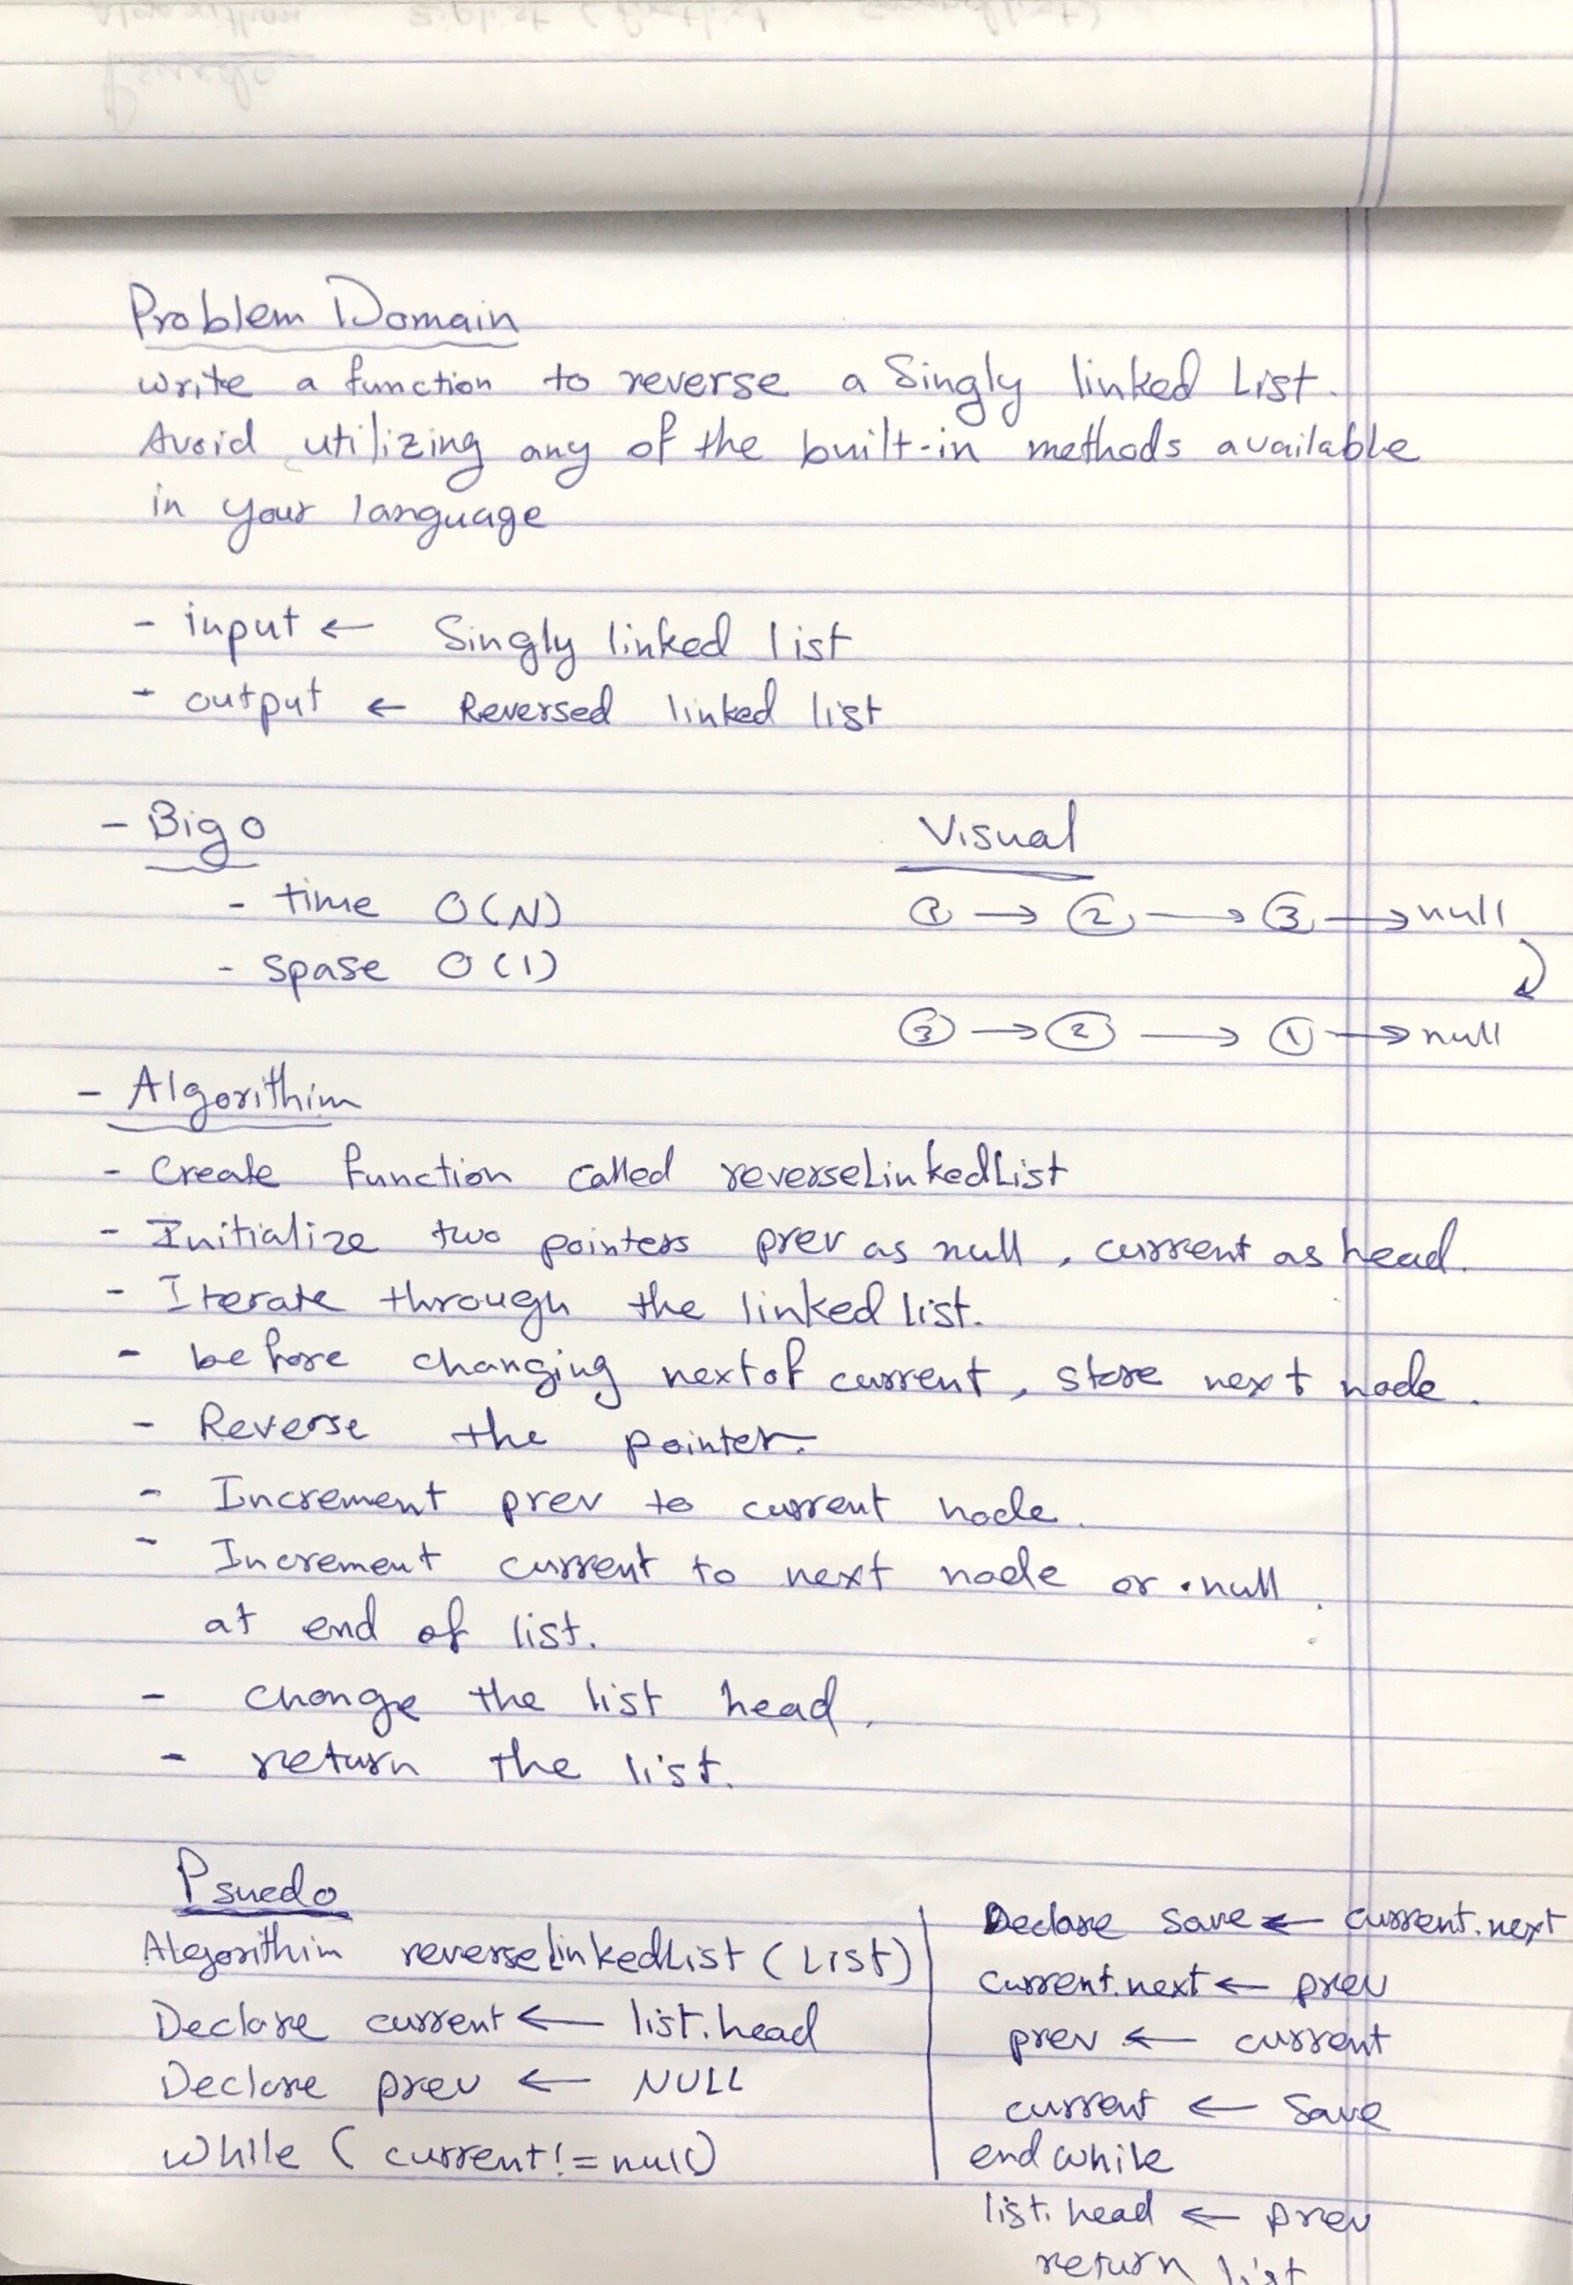 Problem Domain
write a function to reverse a Singly linked List.
Avoid utilizing any of the built-in methods available
in your language
- input ← Singly linked list
- output ← Reversed linked list
- Big O
- time O(N)
- spase O(1)
Visual
1 → 2 → 3 → null
3 → 2 → 1 → null
- Algorithim
- Create function called reverseLinkedList
- Initialize two pointers prev as null, current as head.
- Iterate through the linked list.
- before changing next of current, store next node.
- Reverse the pointer.
- Increment prev to current node.
- Increment current to next node or null
at end of list.
- change the list head.
- return the list.
Psuedo
Algorithim reverseLinkedList (List)
Declare current ← list.head
Declare prev ← NULL
while ( current != null)
Declare save ← current.next
current.next ← prev
prev ← current
current ← save
end while
list.head ← prev
return list